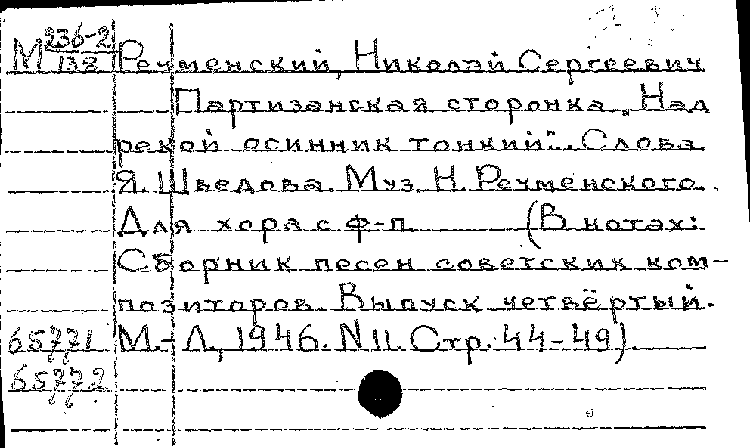 М 236-2/138 Речменский, Николай Сергеевич
Партизанская сторонка „Над
рекой осинник тонкий". Слова
Я. Шведова. Муз. Н. Речменского.
Для хора с ф-п. (В нотах:
Сборник песен советских ком-
позиторов. Выпуск четвёртый.
65771 М.-Л., 1946. N 11. Стр. 44-49).
65772